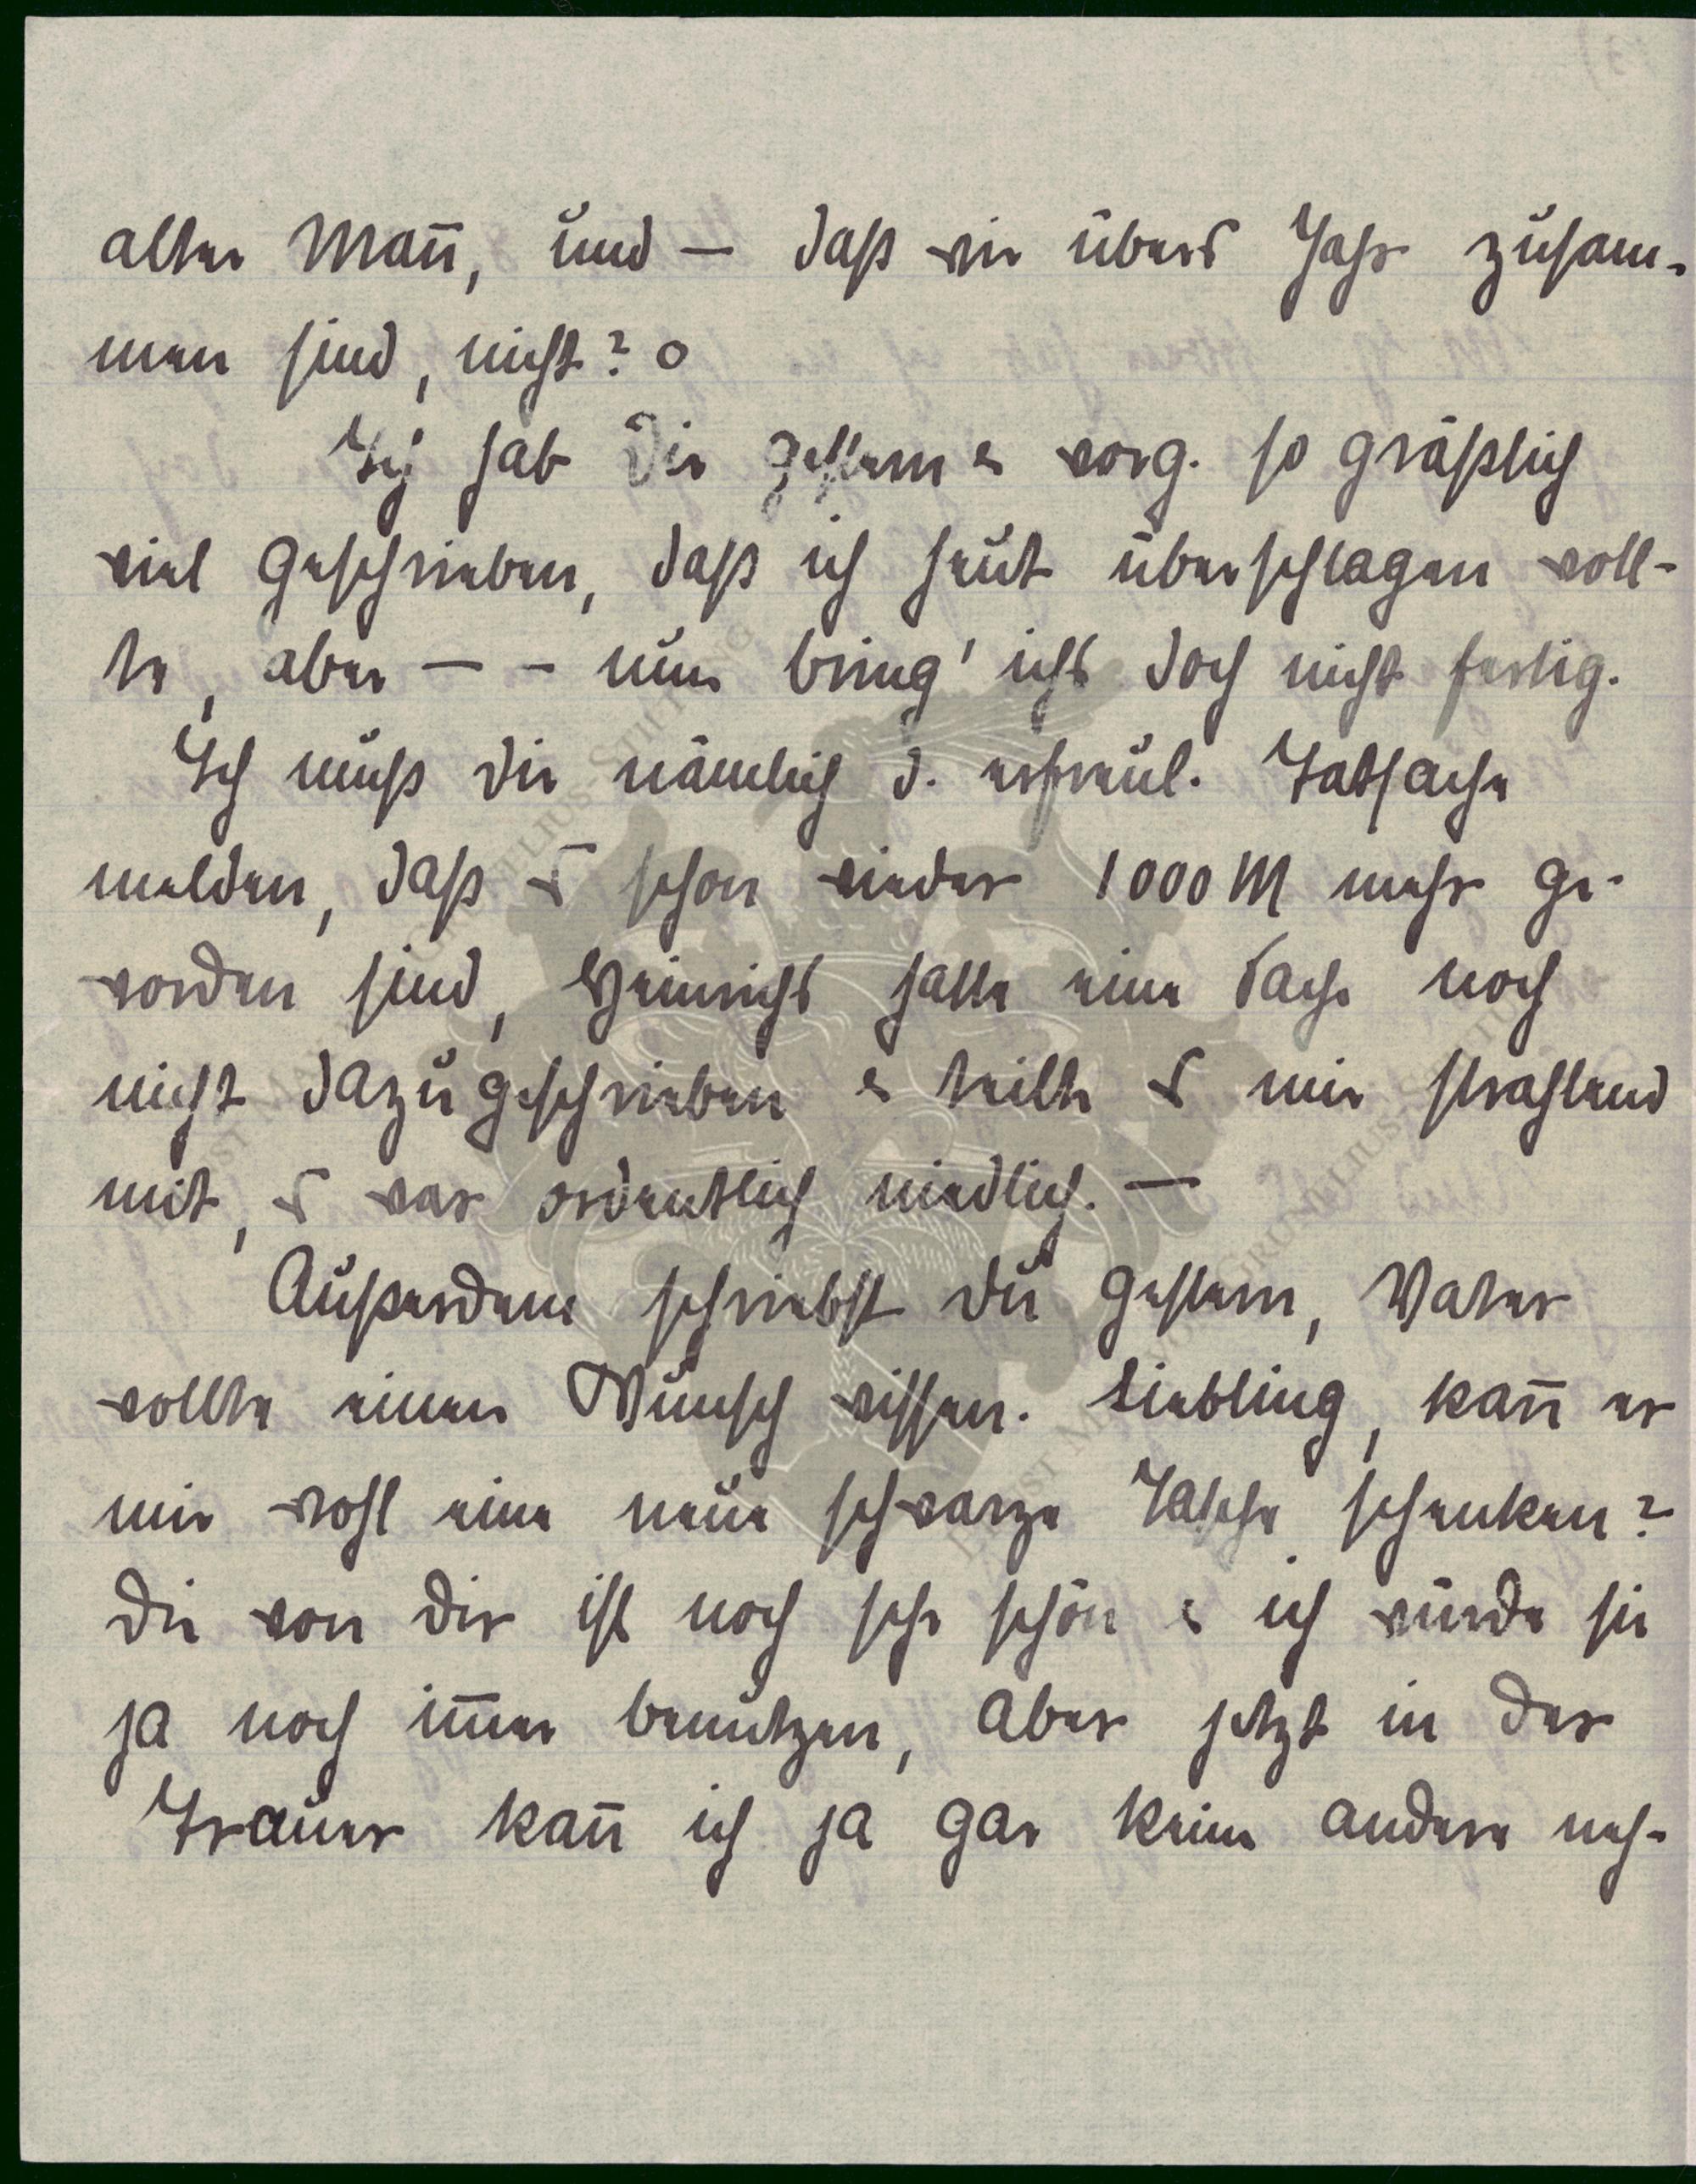 alter Mann, und – daß wir übers Jahr zusam-
men sind, nicht? o
Ich hab Dir gestern & vorg. so gräßlich
viel geschrieben, daß ich heut überschlagen woll-
te, aber – – nun bring' ichs doch nicht fertig.
Ich muß Dir nämlich d. erfreul. Tatsache
melden, daß es schon wieder 1000 M mehr ge-
worden sind, Heinrichs hatte eine Sache noch
nicht dazugeschrieben & teilte es mir strahlend
mit, es war ordentlich niedlich. –
Außerdem schriebst Du gestern, Vater
wollte einen Wunsch wissen. Liebling, kann er
mir wohl eine neue schwarze Tasche schenken?
Die von Dir ist noch sehr schön & ich würde sie
ja noch immer benutzen, aber jetzt in der
Trauer kann ich ja gar keine andere neh-